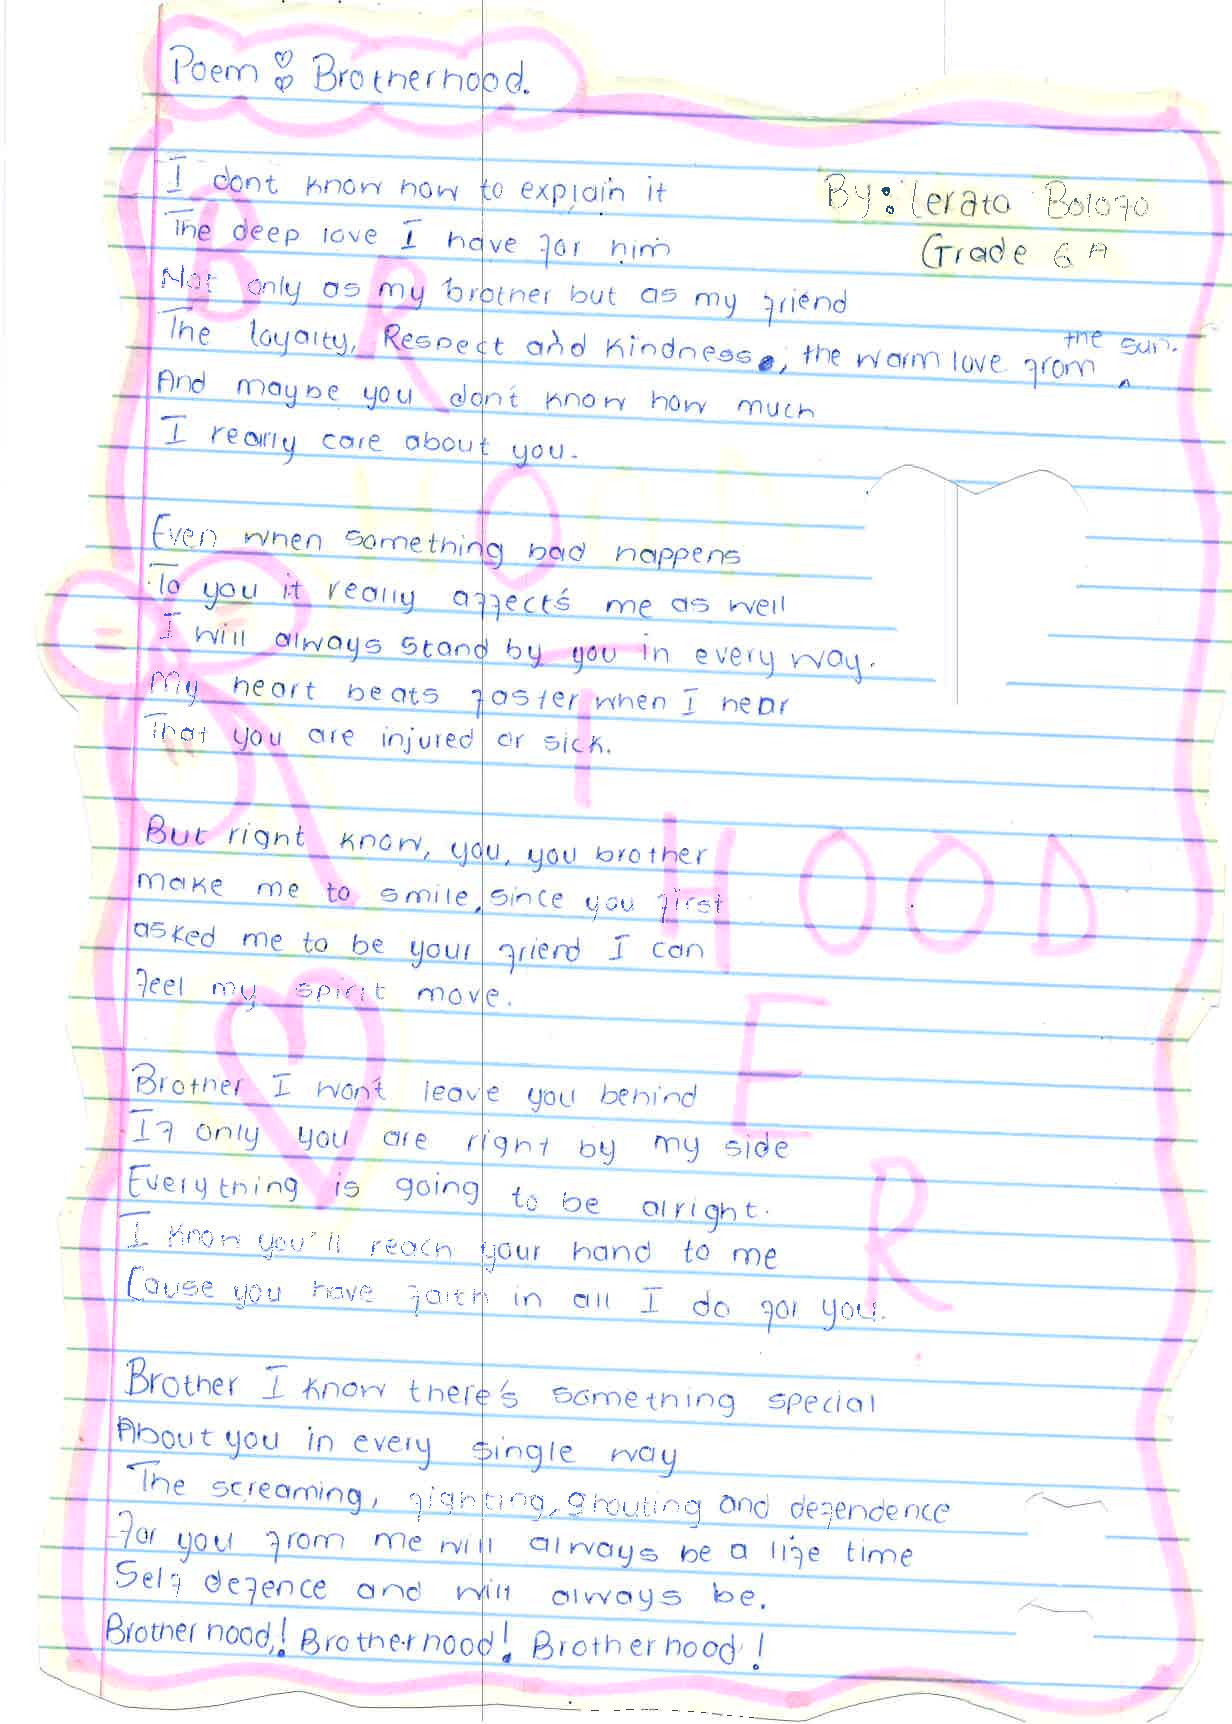 Poem : Brotherhood.
By: Lerato Bologo
Grade 6 A
I dont know how to explain it
The deep love I have for him
Not only as my brother but as my friend
The loyalty, Respect and kindness, the warm love from the sun.
And maybe you don't know how much
I really care about you.
Even when something bad happens
To you it really affect's me as well
I will always stand by you in every way.
My heart beats faster when I hear
That you are injured or sick.
But right know, you, you brother
make me to smile, since you first
asked me to be your friend I can
feel my spirit move.
Brother I won't leave you behind
If only you are right by my side
Everything is going to be alright.
I know you'll reach your hand to me
Cause you have faith in all I do for you.
Brother I know there's something special
About you in every single way
The screaming, fighting, shouting and defendence
For you from me will always be a life time
Self defence and will always be.
Brotherhood,! Brotherhood! Brotherhood!
BROTHERHOOD